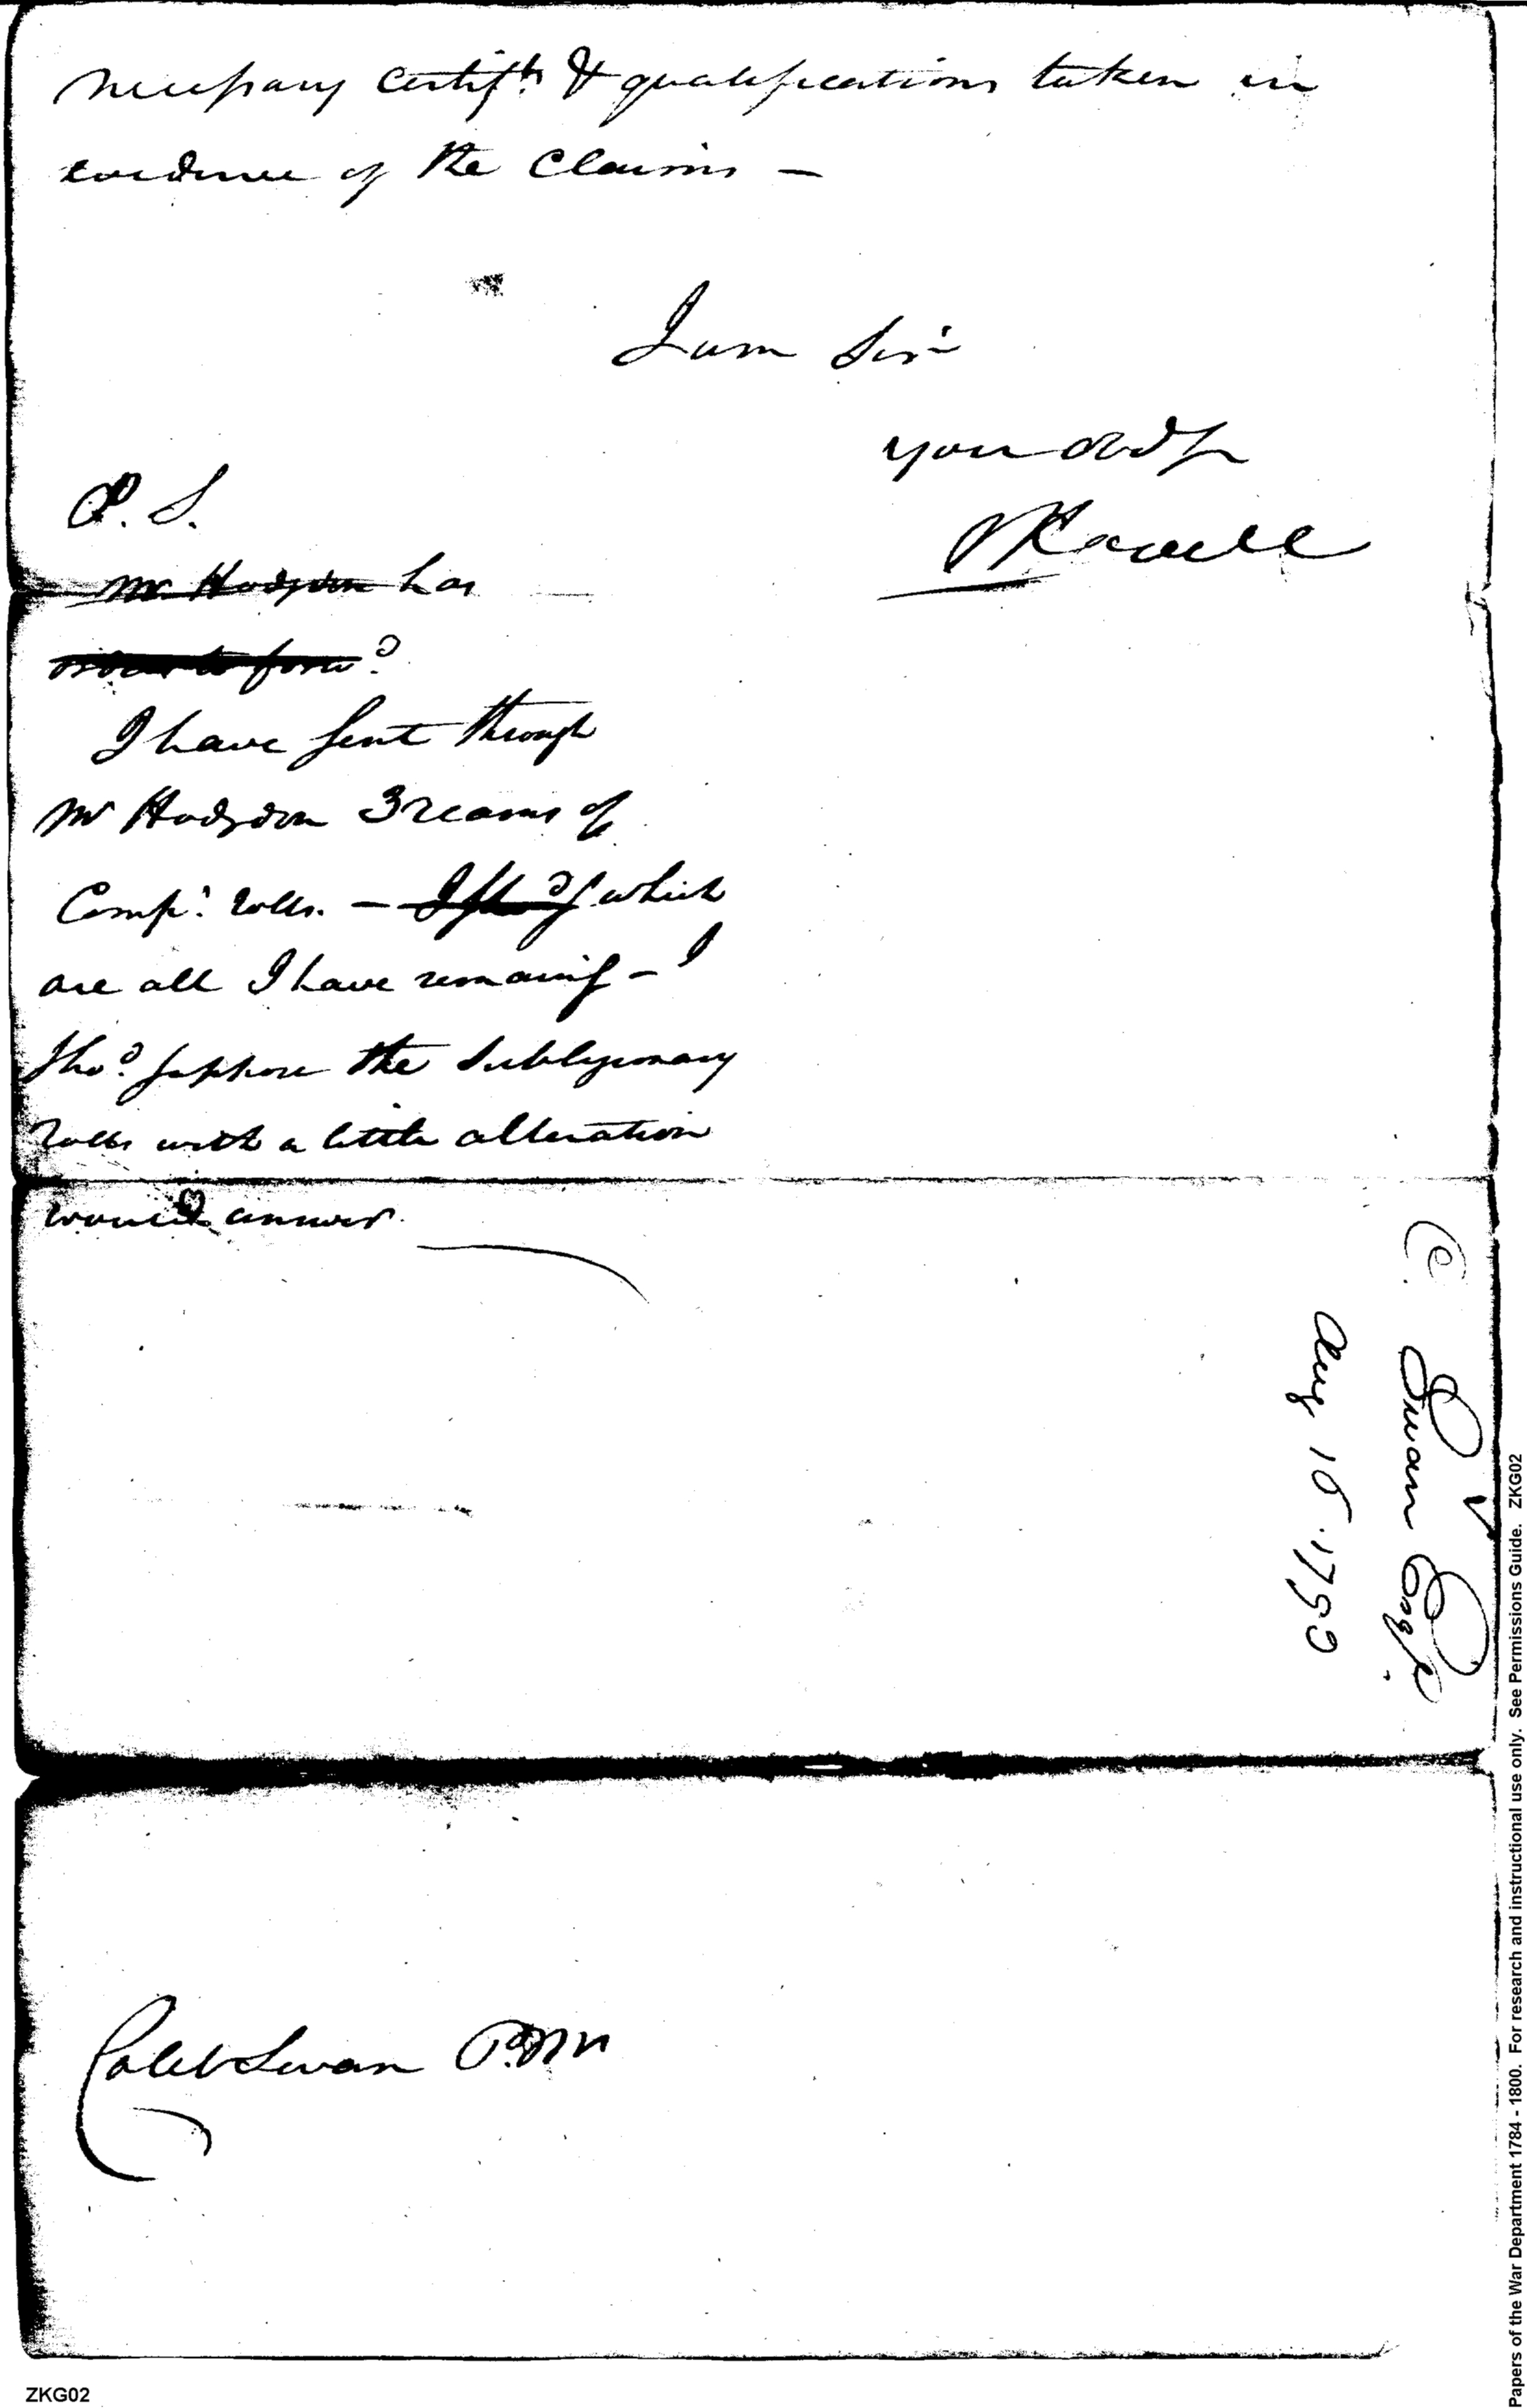 necessary certifts & qualifications taken in
evidence of the Claims –
I am Sir
your
P. S.
Mr. Hodgdon has
to forwd
I have sent through
Mr Hodgdon 3 reams of
Comp: rolls. – which
are all I have remaing – I
shod suppose the Sublegionary
rolls with a little alteration
would answer.
C. Swan Esqr
Aug 10 1793
Caleb Swan P.M
Papers of the War Department 1784 - 1800. For research and instructional use only. See Permissions Guide. ZKG02
ZKG02